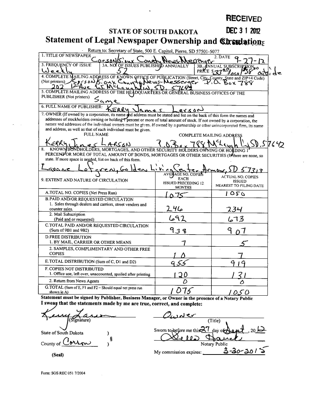 RECEIVED
DEC 31 2012
STATE OF SOUTH DAKOTA
Statement of Legal Newspaper Ownership and Circulation:
Return to: Secretary of State, 500 E. Capitol, Pierre, SD 57501-5077
1. TITLE OF NEWSPAPER Corson/Sioux County News-Messenger
2. DATE 9-27-12
3. FREQUENCY OF ISSUE
Weekly
3A. NO. OF ISSUES PUBLISHED ANNUALLY
52
3B. ANNUAL SUBSCRIPTION
4. COMPLETE MAILING ADDRESS OF KNOWN OFFICE OF PUBLICATION (Street, City, County, State and ZIP+4 Code)
(Not printers)
P.O. Box 788
McLaughlin SD 57642
5. COMPLETE MAILING ADDRESS OF THE HEADQUARTERS OR GENERAL BUSINESS OFFICES OF THE
PUBLISHER (Not printer)
Same
6. FULL NAME OF PUBLISHER: Kerry James Larson
7. OWNER (If owned by a corporation, its name and address must be stated and list on the back of this form the names and
addresses of stockholders owning or holding 1 percent or more of total amount of stock. If not owned by a corporation, the
names and addresses of the individual owners must be given. If owned by a partnership or other unincorporated firm, its name
and address, as well as that of each individual must be given.
FULL NAME COMPLETE MAILING ADDRESS
Kerry James Larson P.O. Box 788 McLaughlin SD 57642
8. KNOWN BONDHOLDERS, MORTGAGES, AND OTHER SECURITY HOLDERS OWNING OR HOLDING 1
PERCENT OR MORE OF TOTAL AMOUNT OF BONDS, MORTGAGES OR OTHER SECURITIES (If there are none, so
state. If more space is needed, list on back of this form.
9. EXTENT AND NATURE OF CIRCULATION
AVERAGE NO. COPIES
EACH
ISSUED PRECEDING 12
MONTHS
ACTUAL NO. COPIES
ISSUED
NEAREST TO FILING DATE
A. TOTAL NO. COPIES (Net Press Run) 1075 1050
B. PAID AND/OR REQUESTED CIRCULATION
1. Sales through dealers and carriers, street vendors and
counter sales. 246 234
2. Mail Subscription
(Paid and or requested) 692 673
C. TOTAL PAID AND/OR REQUESTED CIRCULATION
(Sum of 9B1 and 9B2) 938 907
D. FREE DISTRIBUTION
1. BY MAIL, CARRIER OR OTHER MEANS 7 5
2. SAMPLES, COMPLIMENTARY AND OTHER FREE
COPIES 10 7
E. TOTAL DISTRIBUTION (Sum of C, D1 and D2) 955 919
F. COPIES NOT DISTRIBUTED
1. Office use, left over, unaccounted, spoiled after printing 120 131
2. Return from News Agents 0 0
G. TOTAL (Sum of E, F1 and F2 - Should equal net press run
shown in A) 1075 1050
Statement must be signed by Publisher, Business Manager, or Owner in the presence of a Notary Public
I swear that the statements made by me are true, correct, and complete:
Kerry Larson Owner
(Signature) (Title)
State of South Dakota )
) §
County of Corson )
Sworn to before me this 27 day of Sept, 2012
Notary Public
(Seal)
My commission expires: 3-30-2015
Form: SOS REC 051 7/2004